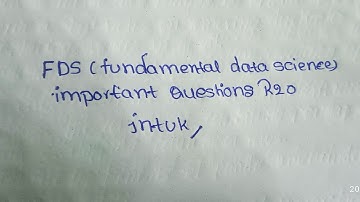 FDS (fundamental data science)
important Questions R20
jntuk,
20